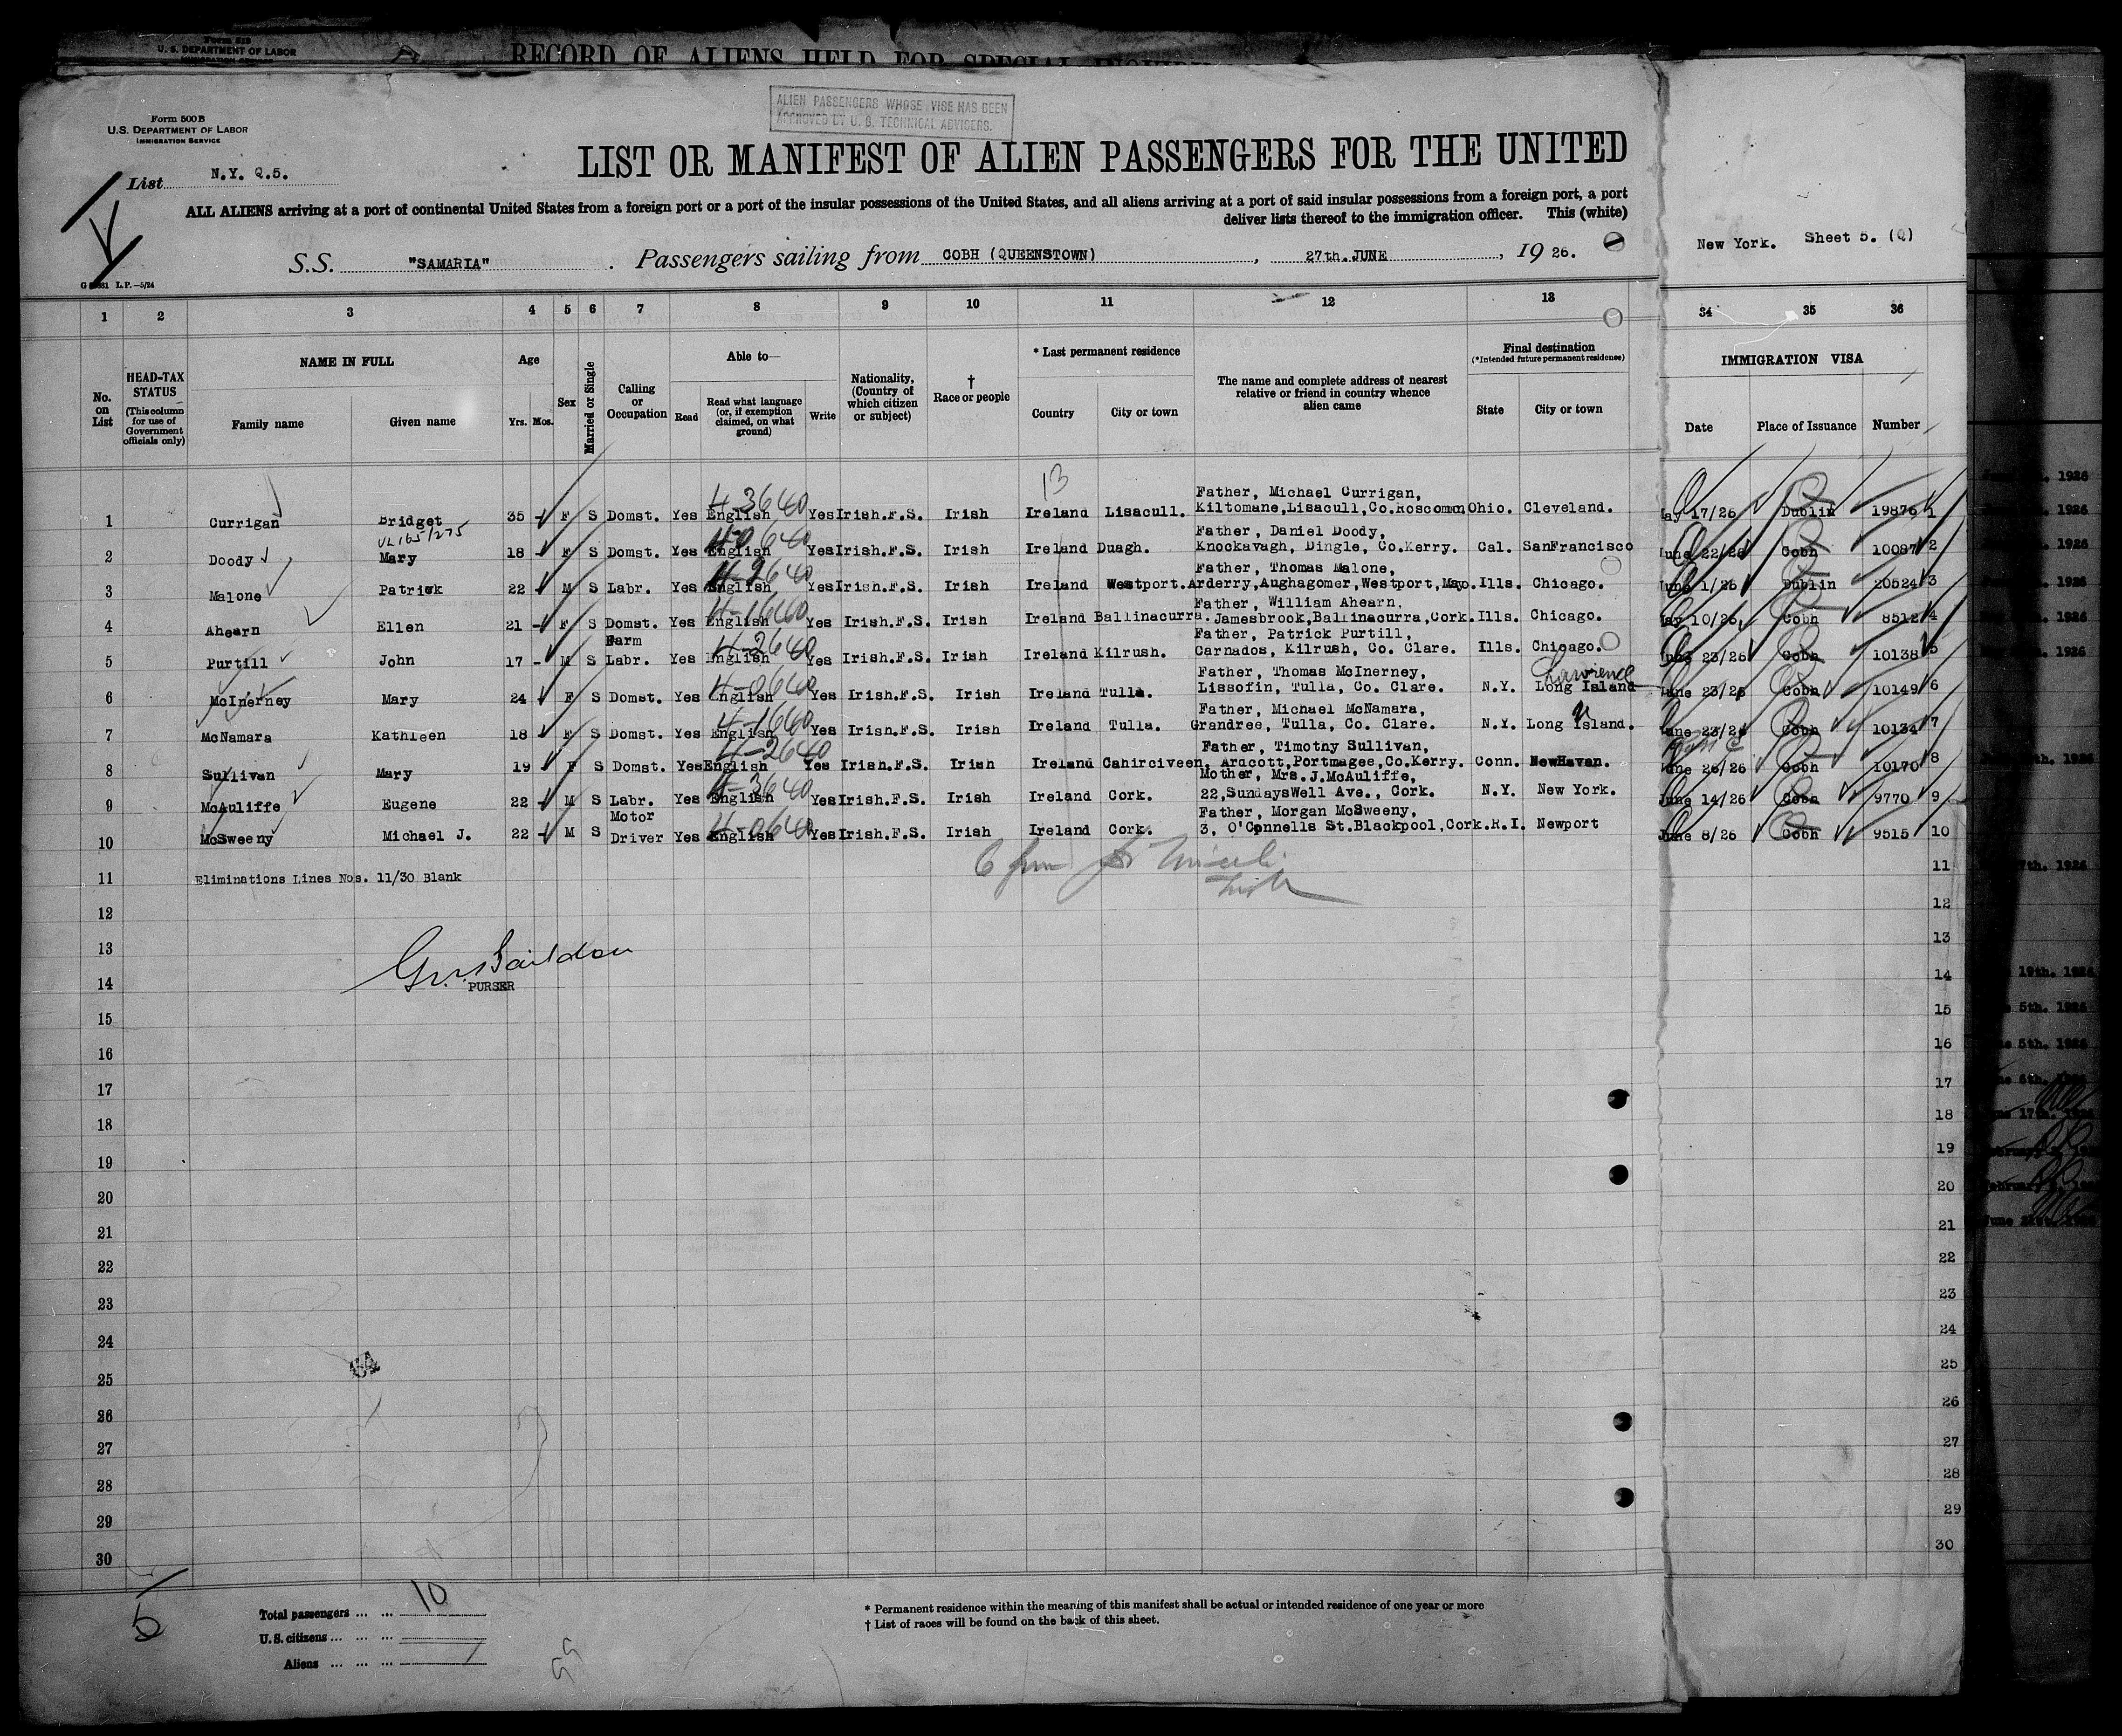 Form 518
U. S. DEPARTMENT OF LABOR
RECORD OF ALIENS HELD FOR SPECIAL INQUIRY
ALIEN PASSENGERS WHOSE VISE HAS BEEN
APPROVED BY U. S. TECHNICAL ADVISERS.
Form 500 B
U.S. DEPARTMENT OF LABOR
IMMIGRATION SERVICE
List N.Y. Q.5.
LIST OR MANIFEST OF ALIEN PASSENGERS FOR THE UNITED
ALL ALIENS arriving at a port of continental United States from a foreign port or a port of the insular possessions of the United States, and all aliens arriving at a port of said insular possessions from a foreign port, a port
deliver lists thereof to the immigration officer. This (white)
New York. Sheet 5. (Q)
S.S. "SAMARIA" . Passengers sailing from COBH (QUEENSTOWN) , 27th. JUNE , 19 26.
L.P.—5/24
1 2 3 4 5 6 7 8 9 10 11 12 13 34 35 36
No. on List
HEAD-TAX STATUS
(This column for use of Government officials only)
NAME IN FULL
Family name Given name
Age
Yrs. Mos.
Sex
Married or Single
Calling or Occupation
Able to—
Read
Read what language (or, if exemption claimed, on what ground)
Write
Nationality, (Country of which citizen or subject)
† Race or people
* Last permanent residence
Country City or town
The name and complete address of nearest relative or friend in country whence alien came
Final destination
(*Intended future permanent residence)
State City or town
IMMIGRATION VISA
Date Place of Issuance Number
13
Father, Michael Currigan,
1 Currigan Bridget 35 - F S Domst. Yes English 4-3640 Yes Irish.F.S. Irish Ireland Lisacull. Kiltomane,Lisacull,Co.Roscommon Ohio. Cleveland. ay 17/26 Dublin 19876 1
VL 165/275
Father, Daniel Doody,
2 Doody Mary 18 F S Domst. Yes English 4-0640 Yes Irish.F.S. Irish Ireland Duagh. Knockavagh, Dingle, Co.Kerry. Cal. SanFrancisco June 22/26 Cobh 10087 2
Father, Thomas Malone,
3 Malone Patrick 22 M S Labr. Yes English 4-2640 Yes Irish.F.S. Irish Ireland Westport. Arderry,Aughagomer,Westport,Mayo. Ills. Chicago. June 1/26 Dublin 20524 3
Father, William Ahearn,
4 Ahearn Ellen 21 - F S Domst. Yes English 4-1640 Yes Irish.F.S. Irish Ireland Ballinacurra. Jamesbrook,Ballinacurra,Cork. Ills. Chicago. ay 10/26, Cobh 8512 4
Farm Father, Patrick Purtill,
5 Purtill John 17 - M S Labr. Yes English 4-2640 Yes Irish.F.S. Irish Ireland Kilrush. Carnados, Kilrush, Co. Clare. Ills. Chicago. June 23/26 Cobh 10138 5
Father, Thomas McInerney, Lawrence
6 McInerney Mary 24 F S Domst. Yes English 4-0640 Yes Irish.F.S. Irish Ireland Tulla. Lissofin, Tulla, Co. Clare. N.Y. Long Island June 23/26 Cobh 10149 6
Father, Michael McNamara,
7 McNamara Kathleen 18 F S Domst. Yes English 4-1640 Yes Irish.F.S. Irish Ireland Tulla. Grandree, Tulla, Co. Clare. N.Y. Long Island. June 23/26 Cobh 10134 7
Father, Timothy Sullivan,
8 Sullivan Mary 19 F S Domst. Yes English 4-2640 Yes Irish.F.S. Irish Ireland Cahirciveen, Aracott,Portmagee,Co.Kerry. Conn. NewHaven. June 26/26 Cobh 10170 8
Mother, Mrs. J.McAuliffe,
9 McAuliffe Eugene 22 - M S Labr. Yes English 4-3640 Yes Irish.F.S. Irish Ireland Cork. 22,SundaysWell Ave., Cork. N.Y. New York. June 14/26 Cobh 9770 9
Motor Father, Morgan McSweeny,
10 McSweeny Michael J. 22 - M S Driver Yes English 4-0640 Yes Irish.F.S. Irish Ireland Cork. 3, O'Connells St.Blackpool,Cork. R.I. Newport June 8/26 Cobh 9515 10
11 Eliminations Lines Nos. 11/30 Blank 11
12 12
13 13
14 PURSER 14
15 15
16 16
17 17
18 18
19 19
20 20
21 21
22 22
23 23
24 24
25 25
26 26
27 27
28 28
29 29
30 30
5
Total passengers ... ... 10
U.S. citizens ... ... ...
Aliens ... ... ...
* Permanent residence within the meaning of this manifest shall be actual or intended residence of one year or more
† List of races will be found on the back of this sheet.